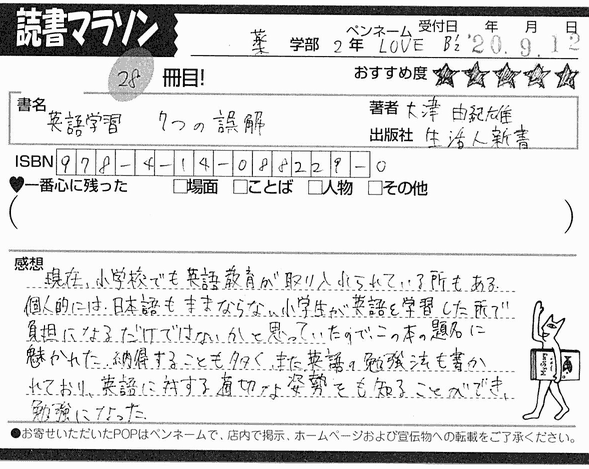 読書マラソン
薬 学部 2年 ペンネーム LOVE B'z 受付日 年 月 日 '20.9.12
28 冊目!
おすすめ度 ★★★★★
書名 英語学習 7つの誤解
著者 大津 由紀雄
出版社 生活人新書
ISBN 978-4-14-088229-0
♥一番心に残った □場面 □ことば □人物 □その他
( )
感想
現在、小学校でも英語教育が取り入れられている所もある。
個人的には、日本語もままならない小学生が英語を学習した所で
負担になるだけではないかと思っていたので、この本の題名に
魅かれた。納得することも多く、また英語の勉強法も書か
れており、英語に対する適切な姿勢をも知ることができ、
勉強になった。
●お寄せいただいたPOPはペンネームで、店内で掲示、ホームページおよび宣伝物への転載をご了承ください。